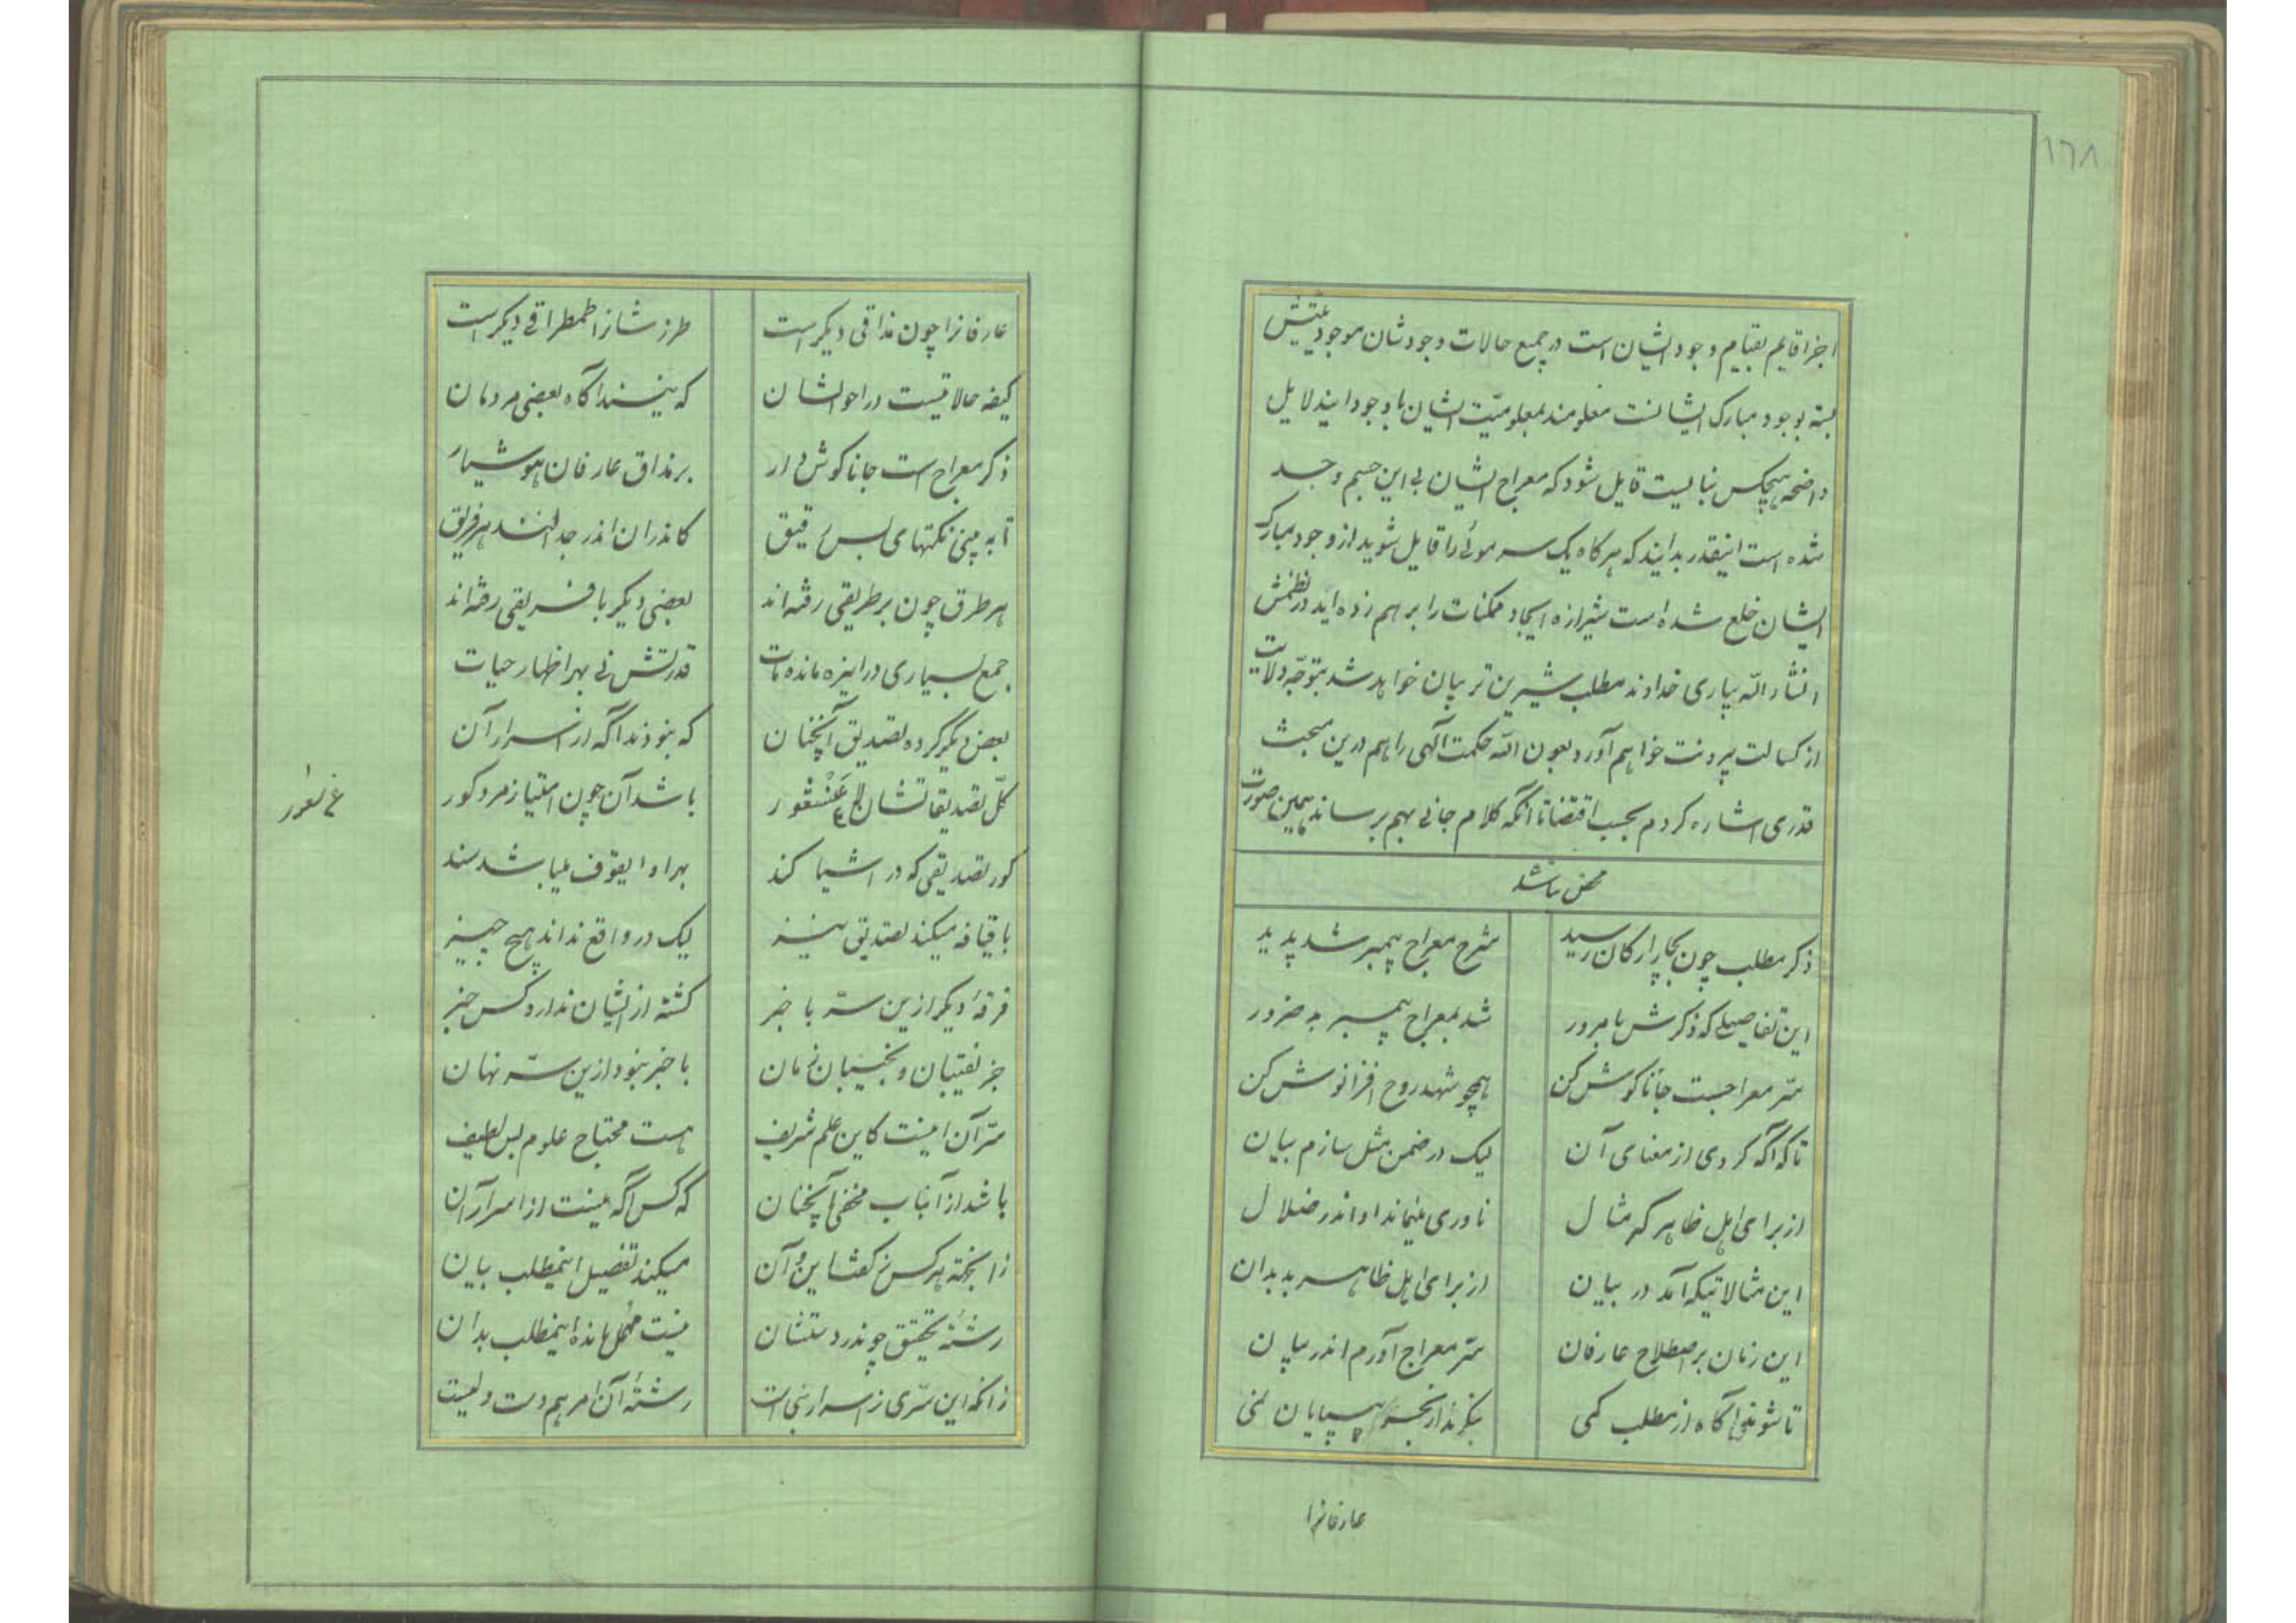 ۱۶۸
اجزا قایم بقیام وجود ایشان است در جمیع حالات وجودشان موجودیتش
بسته بوجود مبارک ایشانست معلومند بمعلومیّت ایشان با وجود ایندلایل
واضحه هیچکس نبایست قایل شود که معراج ایشان بی این جسم و جسد
شده است اینقدر بدانید که هرگاه یک سر موئی را قایل شوید از وجود مبارک
ایشان خلع شده است شیرازه ایجاد ممکنات را برهم زده اید در نظمش
انشاء الله بیاری خداوند مطلب شیرین تر بیان خواهد شد بتوجّه ولایت
از کسالت بیرونت خواهم آورد بعون الله حکمت الهی را هم درین مبحث
قدری اشاره کردم بحسب اقتضا تا آنکه کلام جانی بهم برساند همین صورت
محض باشد
ذکر مطلب چون بچار ارکان رسید شرح معراج پیمبر شد پدید
این تفاصیلی که ذکرش با مرور شد بمعراج پیمبر به ضرور
سرّ معراجست جانا گوش کن همچو شهد روح افزا نوش کن
تا که آگه گردی از معنای آن لیک در ضمن مثل سازم بیان
از برای اهل ظاهر گر مثال ناوری میماند او اندر ضلال
این مثالاتیکه آمد در بیان از برای اهل ظاهر بد بدان
این زمان بر اصطلاح عارفان سرّ معراج آورم اندر بیان
تا شوند آگاه از مطلب کمی بنگرند از بحر بیپایان نمی
عارفانرا
عارفانرا چون مذاقی دیگر است طرزشانرا طمطراقی دیگر است
کیفه حالاتیست در احوالشان که نیند آگاه بعضی مردمان
ذکر معراج است جانا گوش دار بر مذاق عارفان هوشیار
تا به بینی نکتهای بس دقیق کاندران اندر جدالند هر فریق
هر طرق چون بر طریقی رفته اند بعضی دیگر با فریقی رفته اند
جمع بسیاری در اینره مانده مات قدرتش نی بهر اظهار حیات
بعض دیگر کرده تصدیق آنچنان که نبودند آگه از اسرار آن
کلّ تصدیقاتشان لا عن شعور باشد آن چون امتیاز مرد کور
کور تصدیقی که در اشیا کند بهر او ا یقوف میباشد سند
با قیافه میکند تصدیق نیز لیک در واقع نداند هیچ چیز
فرقهٔ دیگر ازین سرّ با خبر گشته از ایشان ندارد کس خبر
جز نقیبان و نجیبان زمان با خبر نبود ازین سرّ نهان
سرّ آن اینست کاین علم شریف هست محتاج علوم بس لطیف
باشد از آنباب مخفی آنچنان که کس آگه نیست از اسرار آن
زانجهة هر کس ز گفت این و آن میکند تفصیل اینمطلب بیان
رشتهٔ تحقیق چو ندر دستشان نیست مهمل مانده اینمطلب بدان
زانکه این سرّی ز اسرار نبی است رشتهٔ آن امر هم دست ولیست